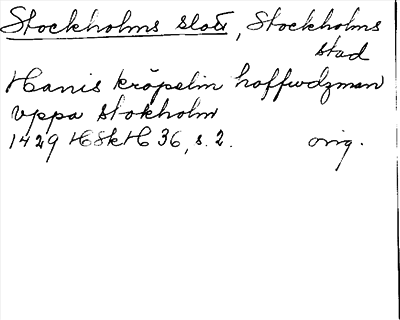 Stockholms slott, Stockholms
stad
Hanis kröpelin hoffwdzman
vppa stokholm
1429 HSkH 36, s. 2. orig.